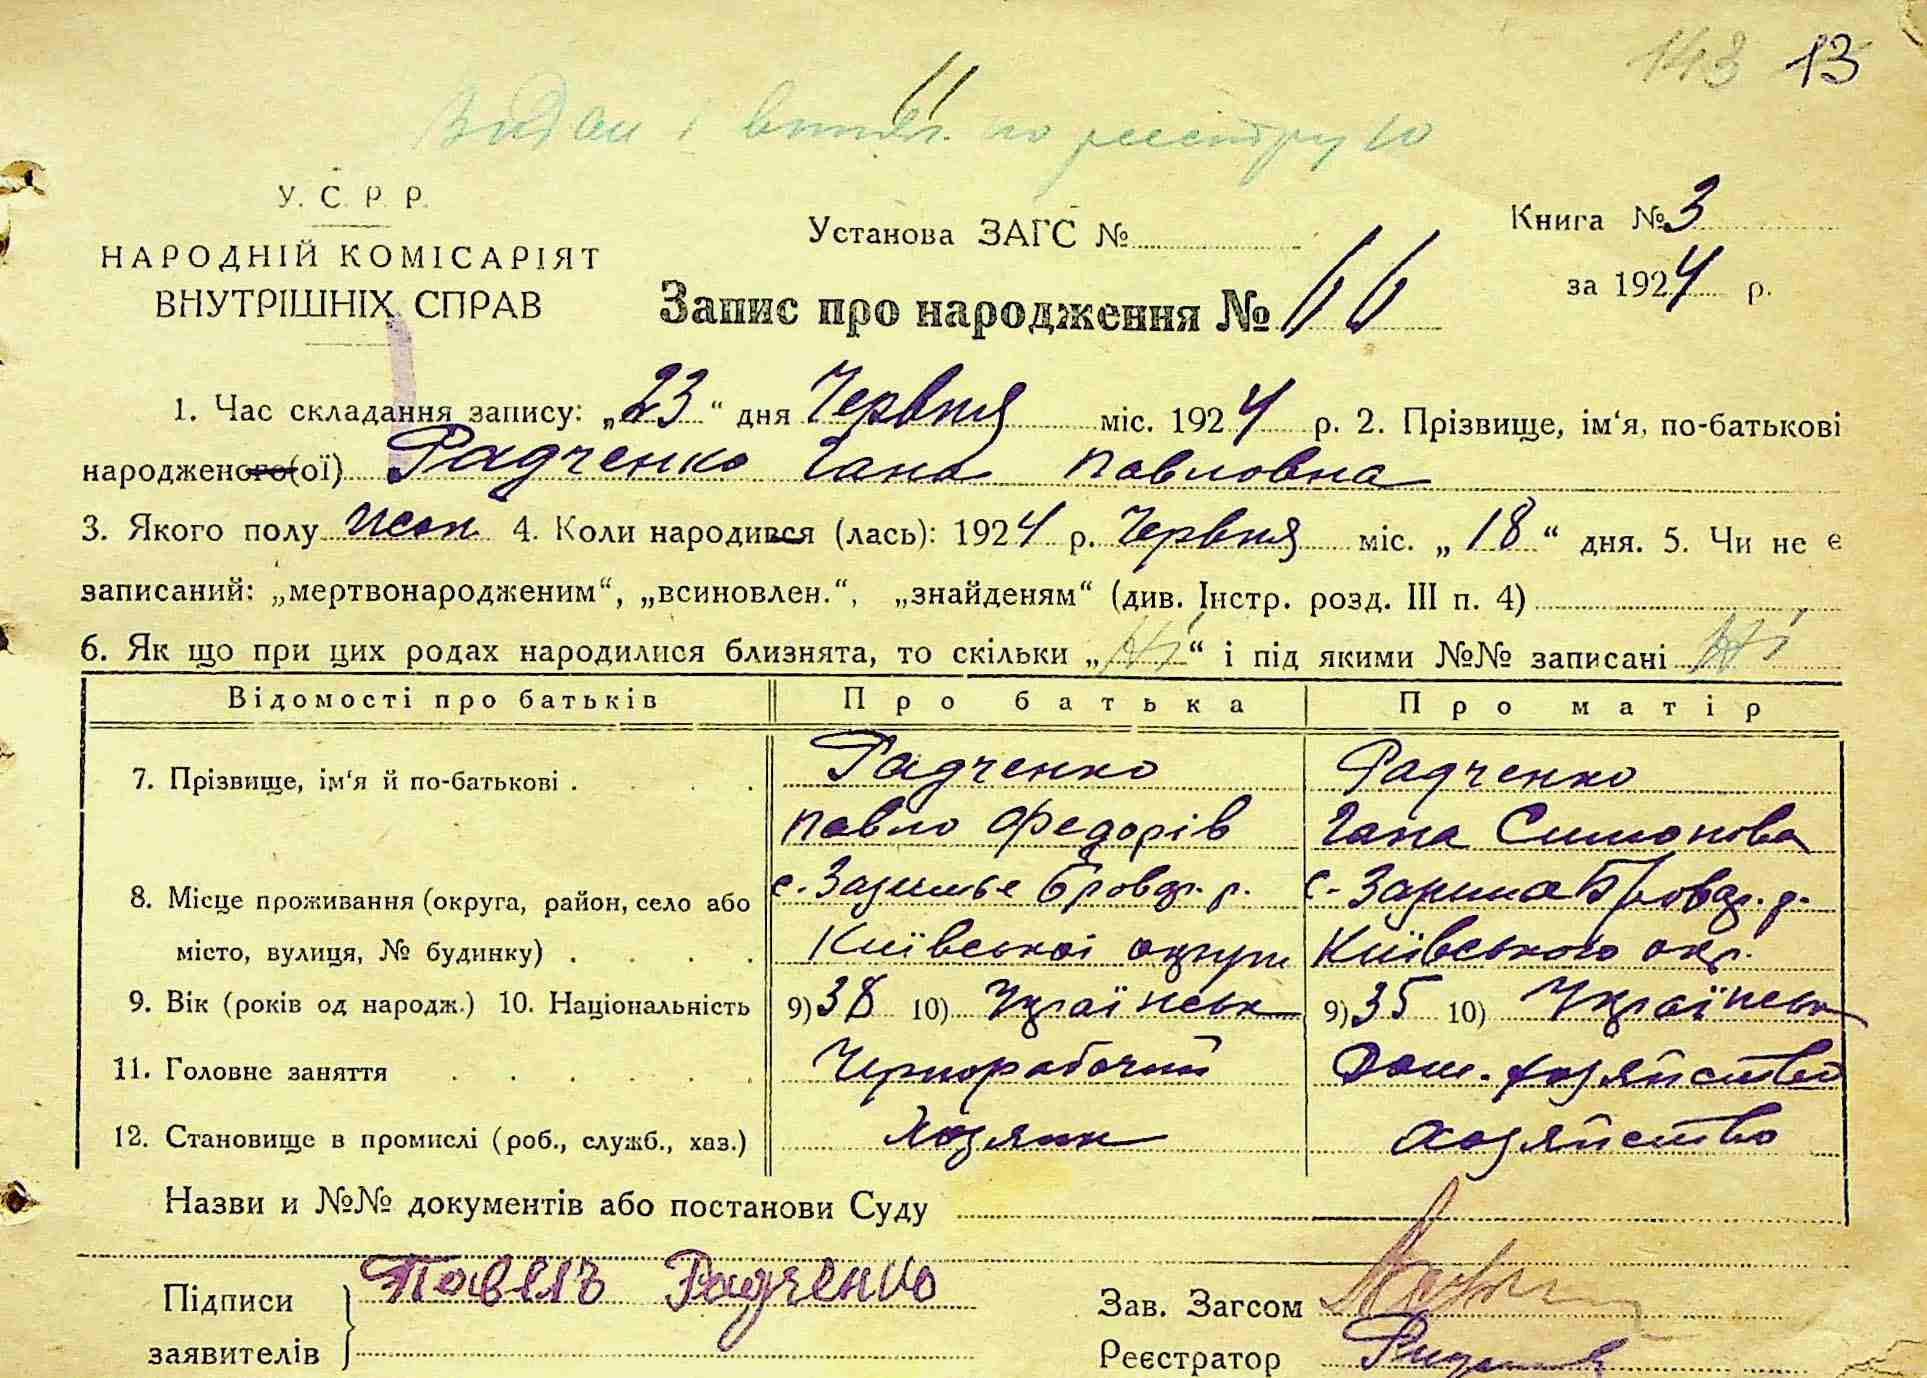 143 13
Видан 1 витяг. по реєстру 10
У. С. Р. Р.
НАРОДНІЙ КОМІСАРІЯТ
ВНУТРІШНІХ СПРАВ
Установа ЗАГС №
Книга № 3
за 1924 р.
Запис про народження № 66
1. Час складання запису: „23“ дня Червня міс. 1924 р. 2. Прізвище, ім‘я, по-батькові
народженого(ої) Радченко Гана Павловна
3. Якого полу жон. 4. Коли народився (лась): 1924 р. Червня міс. „18“ дня. 5. Чи не є
записаний: „мертвонародженим“, „всиновлен.“, „знайденям“ (див. Інстр. розд. III п. 4)
6. Як що при цих родах народилися близнята, то скільки „Ні“ і під якими №№ записані Ні
Відомості про батьків Про батька Про матір
7. Прізвище, ім‘я й по-батькові . Радченко Радченко
Павло Федорів Гана Симонова
8. Місце проживання (округа, район, село або с. Зазимье Бровар. р. с. Бровар. р.
місто, вулиця, № будинку) . Київської округи Київського окр.
9. Вік (років од народж.) 10. Національність 9) 38 10) Українськ 9) 35 10) Українськ
11. Головне заняття Чернорабочий Дом. хозяйство
12. Становище в промислі (роб., служб., хаз.) Хозяин хозяйство
Назви и №№ документів або постанови Суду
Підписи Павелъ Радченко
заявителів
Зав. Загсом
Реєстратор